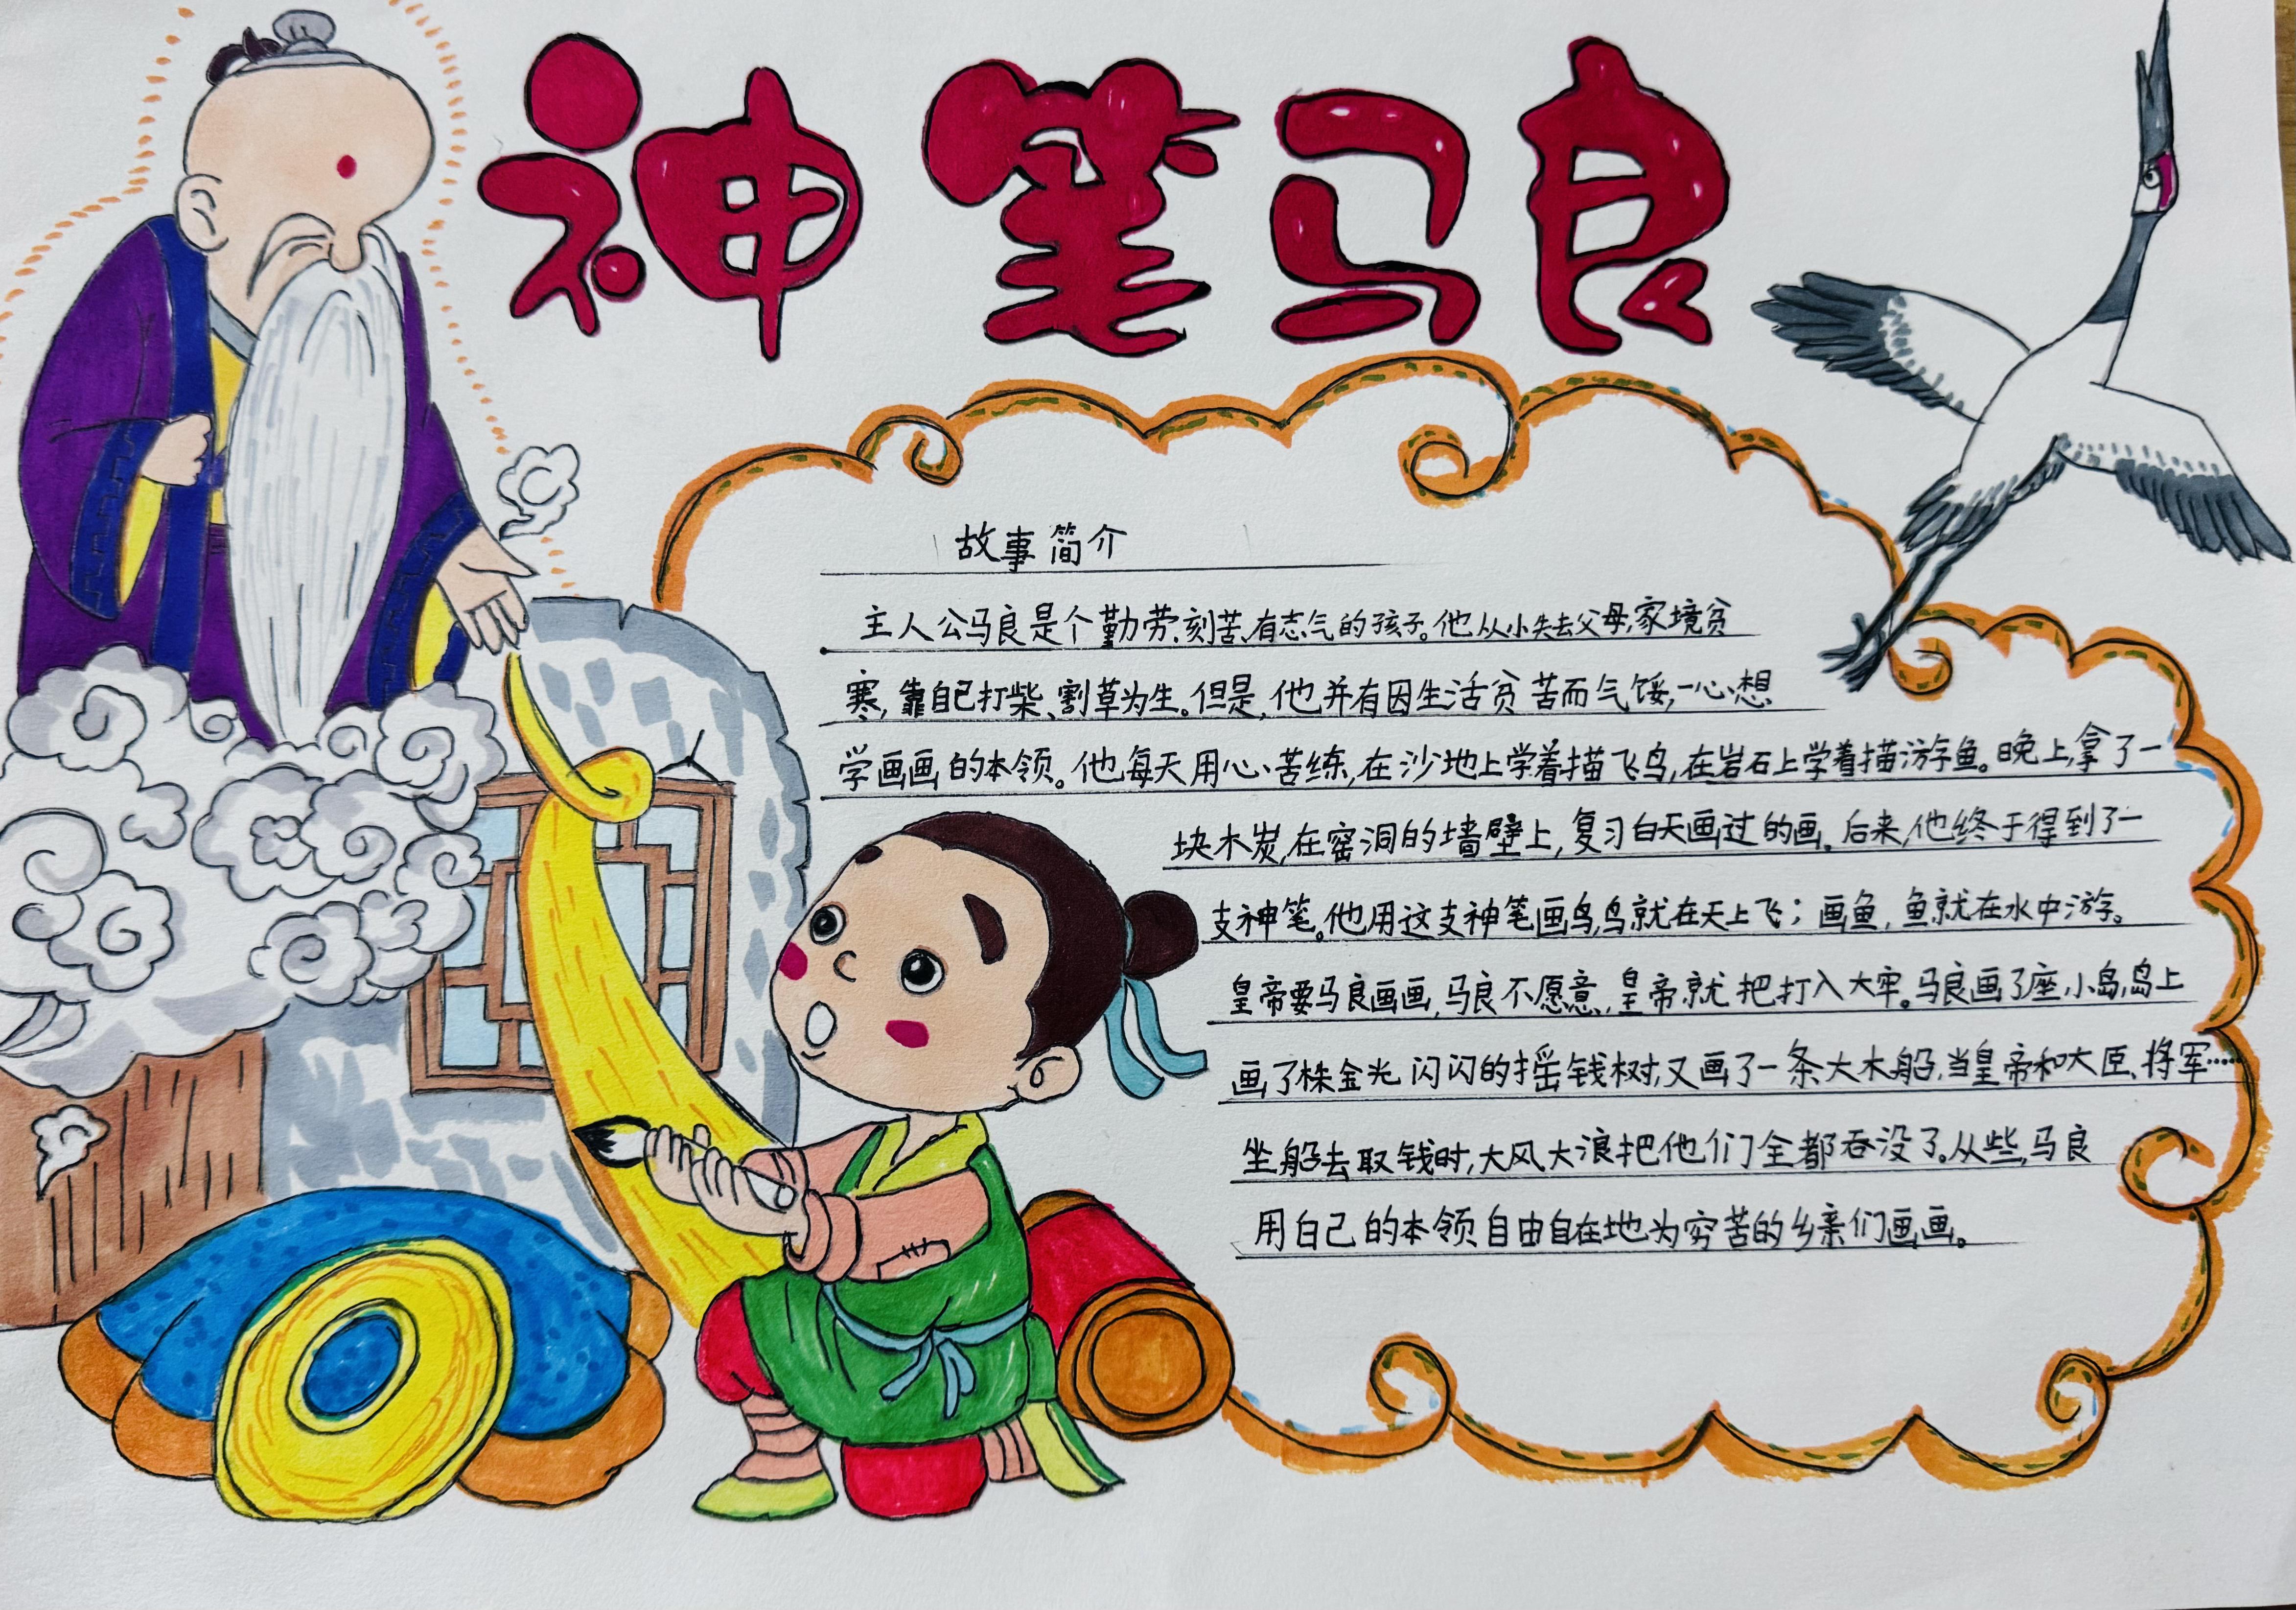 神笔马良
故事简介
主人公马良是个勤劳、刻苦、有志气的孩子。他从小失去父母,家境贫
寒,靠自己打柴、割草为生。但是,他并有因生活贫苦而气馁,一心想
学画画的本领。他每天用心苦练,在沙地上学着描飞鸟,在岩石上学着描游鱼。晚上,拿了一
块木炭,在窑洞的墙壁上,复习白天画过的画。后来,他终于得到了一
支神笔。他用这支神笔画鸟,鸟就在天上飞;画鱼,鱼就在水中游。
皇帝要马良画画,马良不愿意,皇帝就把打入大牢。马良画了座小岛,岛上
画了株金光闪闪的摇钱树,又画了一条大木船,当皇帝和大臣、将军……
坐船去取钱时,大风大浪把他们全都吞没了。从些,马良
用自己的本领自由自在地为穷苦的乡亲们画画。